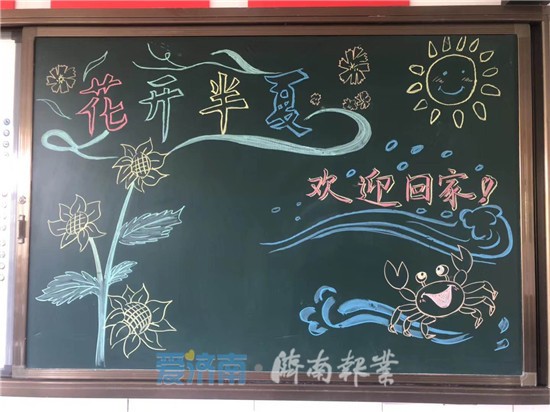 花开半夏
欢迎回家!
爱济南·济南报业